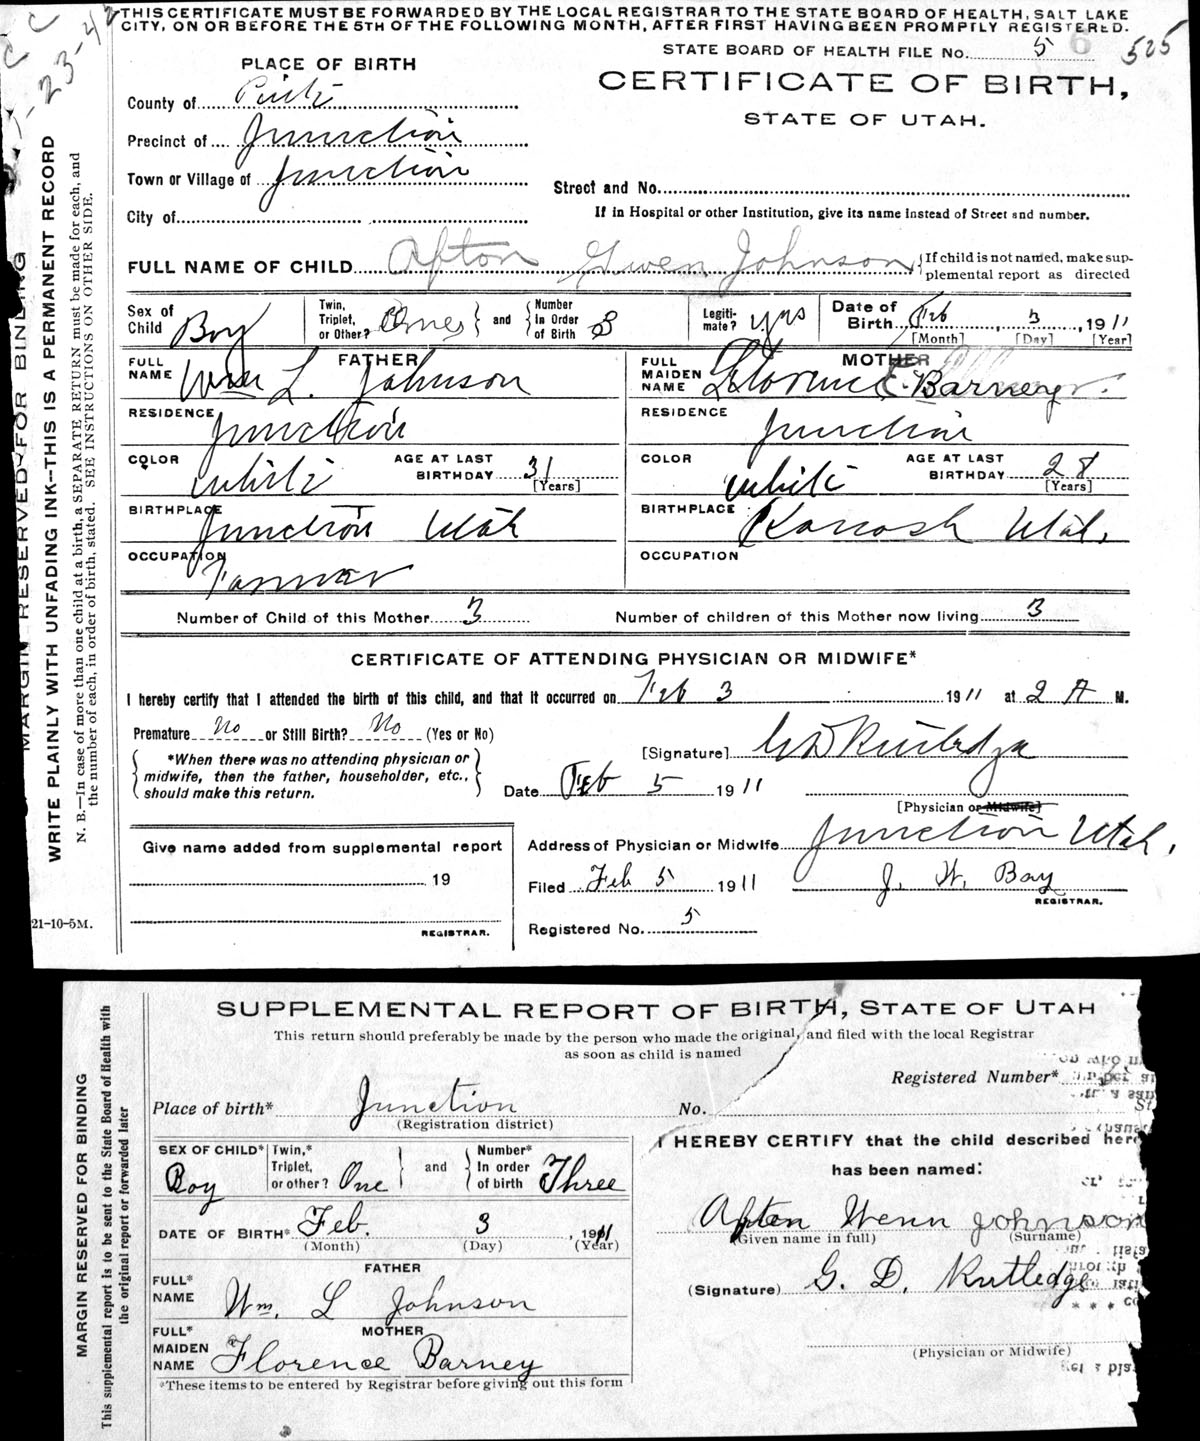 THIS CERTIFICATE MUST BE FORWARDED BY THE LOCAL REGISTRAR TO THE STATE BOARD OF HEALTH, SALT LAKE
CITY, ON OR BEFORE THE 5TH OF THE FOLLOWING MONTH, AFTER FIRST HAVING BEEN PROMPTLY REGISTERED.
STATE BOARD OF HEALTH FILE No. 5 6 525
PLACE OF BIRTH
CERTIFICATE OF BIRTH,
STATE OF UTAH.
County of Piute
Precinct of Junction
Town or Village of Junction
Street and No.
City of
If in Hospital or other Institution, give its name instead of Street and number.
FULL NAME OF CHILD Afton Gwen Johnson { If child is not named, make sup-
plemental report as directed
Sex of Child Boy
Twin, Triplet, or Other? One } and { Number In Order of Birth 3
Legiti- mate? yes
Date of Birth Feb, 3, 1911
[Month] [Day] [Year]
FATHER
FULL NAME Wm L. Johnson
MOTHER
FULL MAIDEN NAME Florence E. Barney
RESIDENCE Junction
RESIDENCE Junction
COLOR White
AGE AT LAST BIRTHDAY 31 [Years]
COLOR White
AGE AT LAST BIRTHDAY 28 [Years]
BIRTHPLACE Junction Utah
BIRTHPLACE Kanosh Utah.
OCCUPATION Farmer
OCCUPATION
Number of Child of this Mother 3
Number of children of this Mother now living 3
CERTIFICATE OF ATTENDING PHYSICIAN OR MIDWIFE*
I hereby certify that I attended the birth of this child, and that it occurred on Feb 3 1911 at 2 A M.
Premature No or Still Birth? No (Yes or No)
*When there was no attending physician or
midwife, then the father, householder, etc.,
should make this return.
[Signature] G D Rutledge
Date Feb 5 1911
[Physician or Midwife]
Address of Physician or Midwife Junction Utah.
Give name added from supplemental report
19
REGISTRAR.
Filed Feb 5 1911 J. W. Bay
REGISTRAR.
Registered No. 5
21-10-5M.
MARGIN RESERVED FOR BINDING
WRITE PLAINLY WITH UNFADING INK--THIS IS A PERMANENT RECORD
N. B.—In case of more than one child at a birth, a SEPARATE RETURN must be made for each, and
the number of each, in order of birth, stated. SEE INSTRUCTIONS ON OTHER SIDE.
SUPPLEMENTAL REPORT OF BIRTH, STATE OF UTAH
This return should preferably be made by the person who made the original, and filed with the local Registrar
as soon as child is named
Registered Number*
Place of birth* Junction
(Registration district)
No.
SEX OF CHILD* Boy
Twin,* Triplet, or other? One } and { Number* In order of birth Three
DATE OF BIRTH* Feb. 3, 1911
(Month) (Day) (Year)
FATHER
FULL* NAME Wm. L Johnson
MOTHER
FULL* MAIDEN NAME Florence Barney
*These items to be entered by Registrar before giving out this form
I HEREBY CERTIFY that the child described here
has been named:
Afton Wenn Johnson
(Given name in full) (Surname)
(Signature) G. D. Rutledge
(Physician or Midwife)
MARGIN RESERVED FOR BINDING
This supplemental report is to be sent to the State Board of Health with
the original report or forwarded later